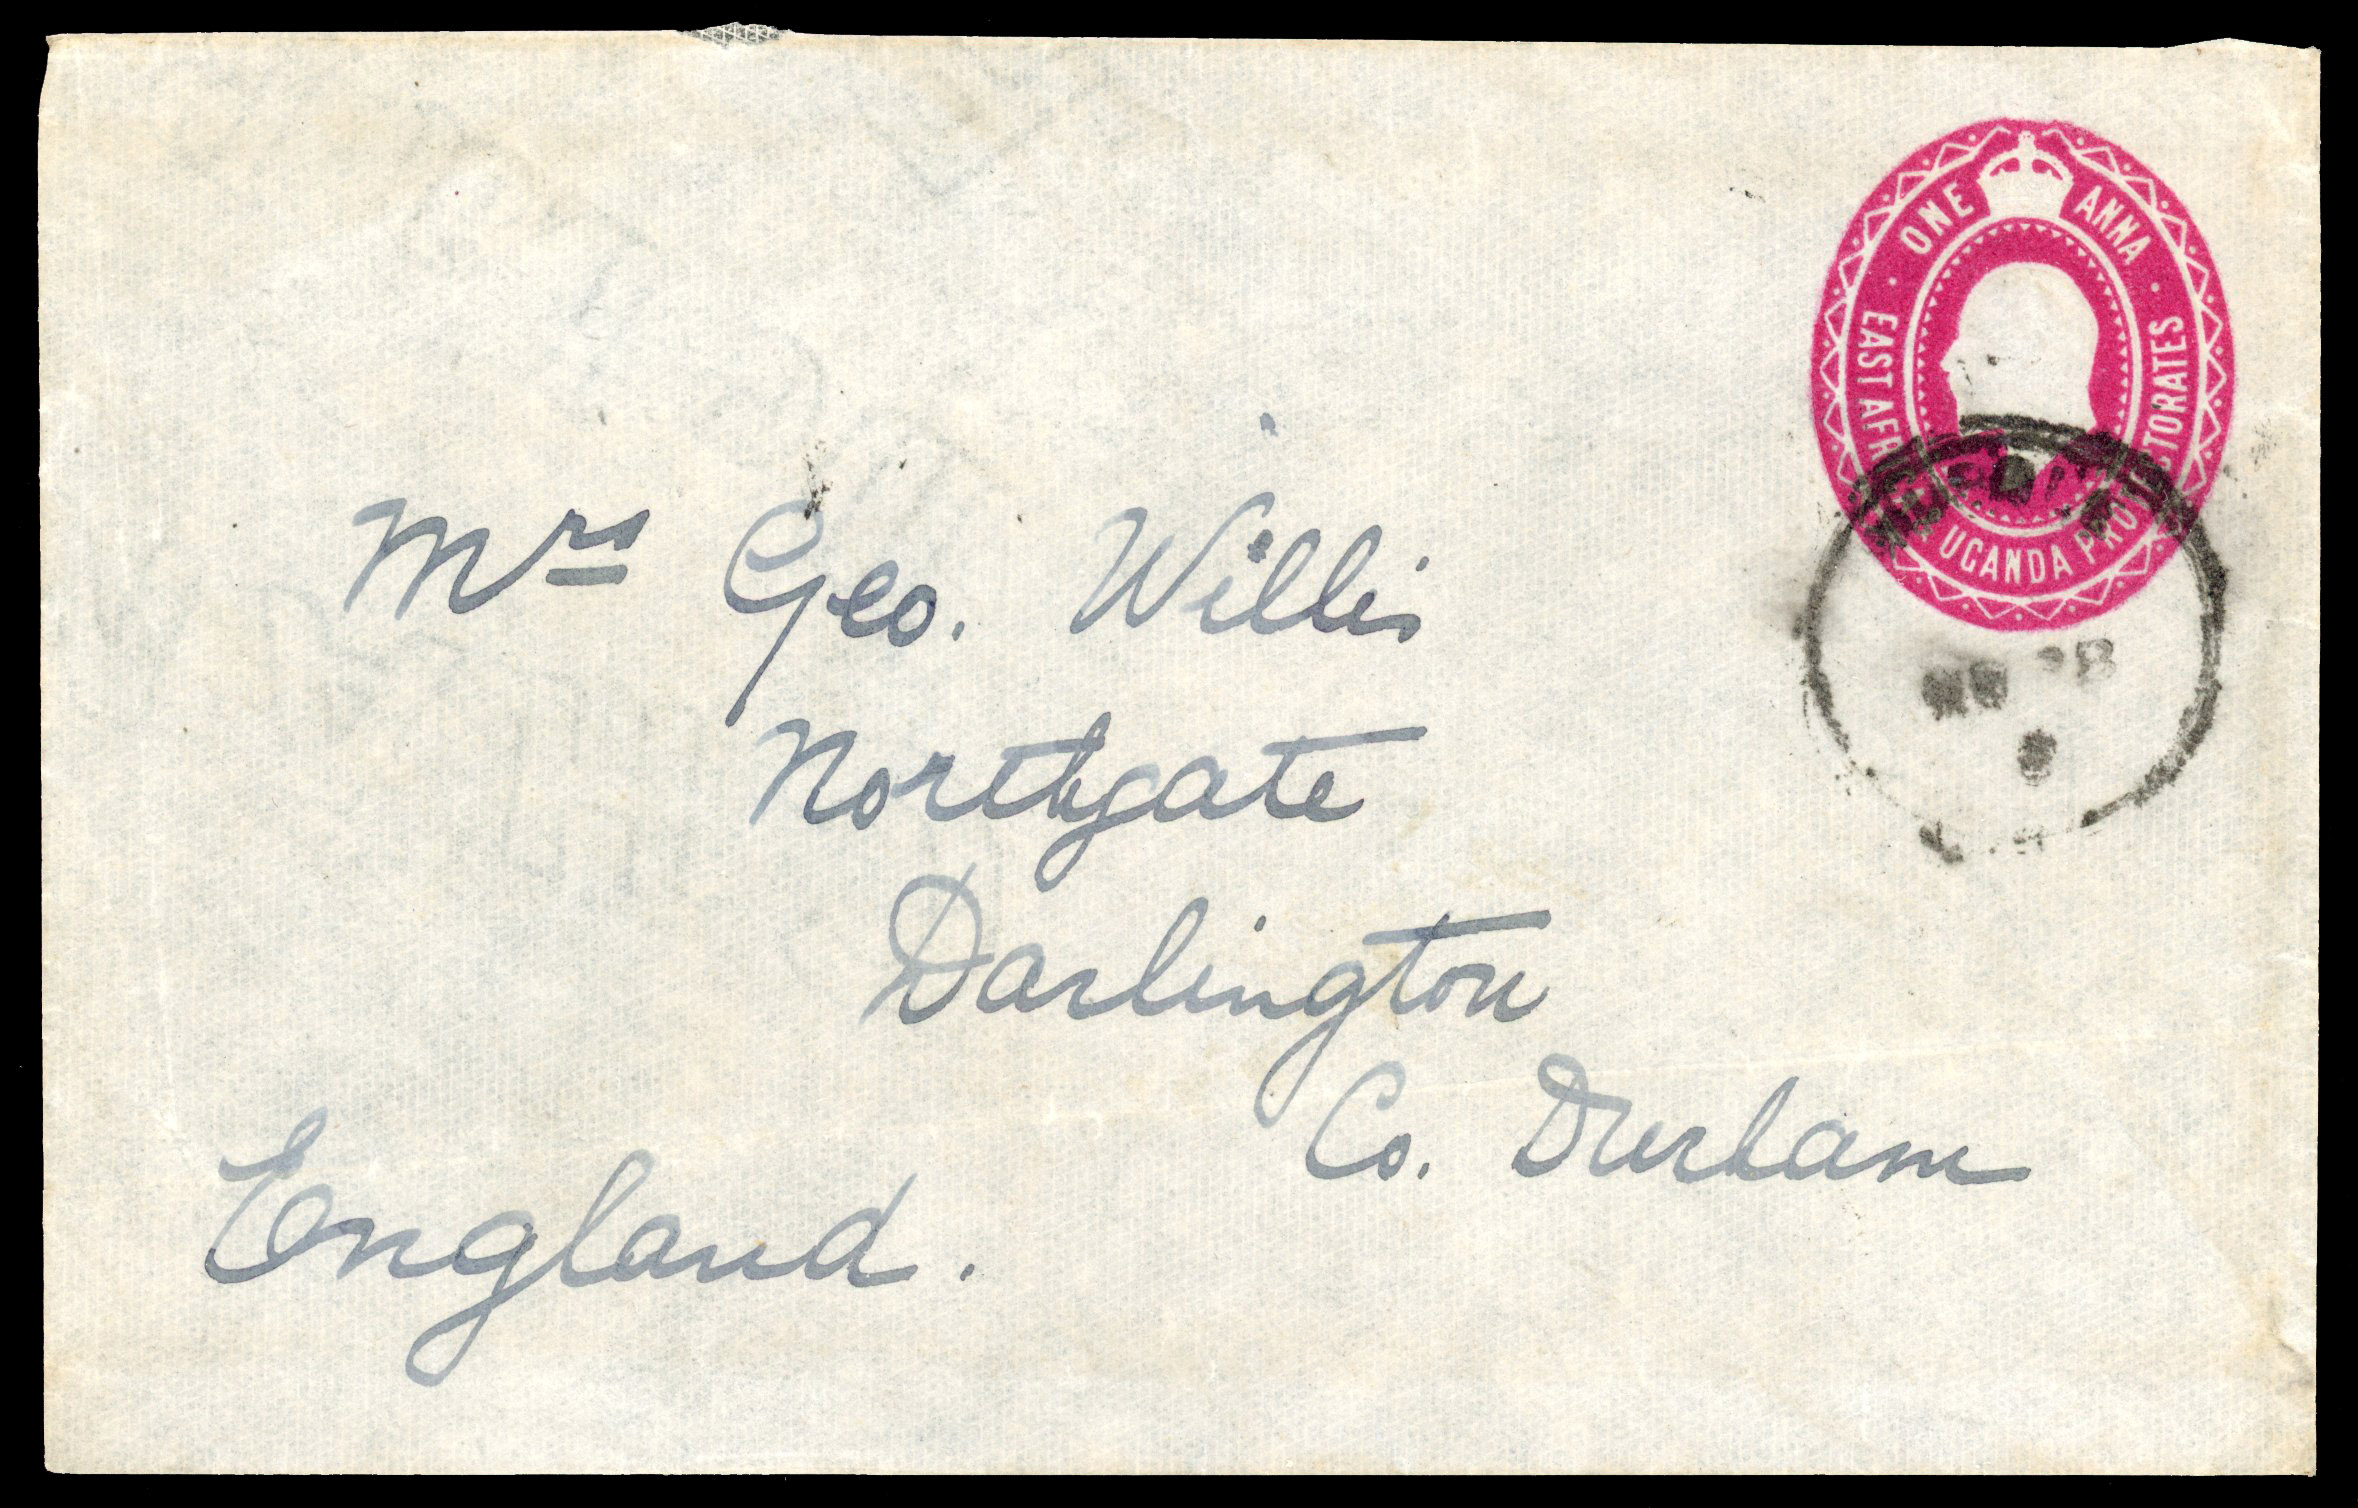 ONE ANNA
EAST AFR UGANDA PROTECTORATES
Mrs Geo. Willis
Northgate
Darlington
Co. Durham
England.